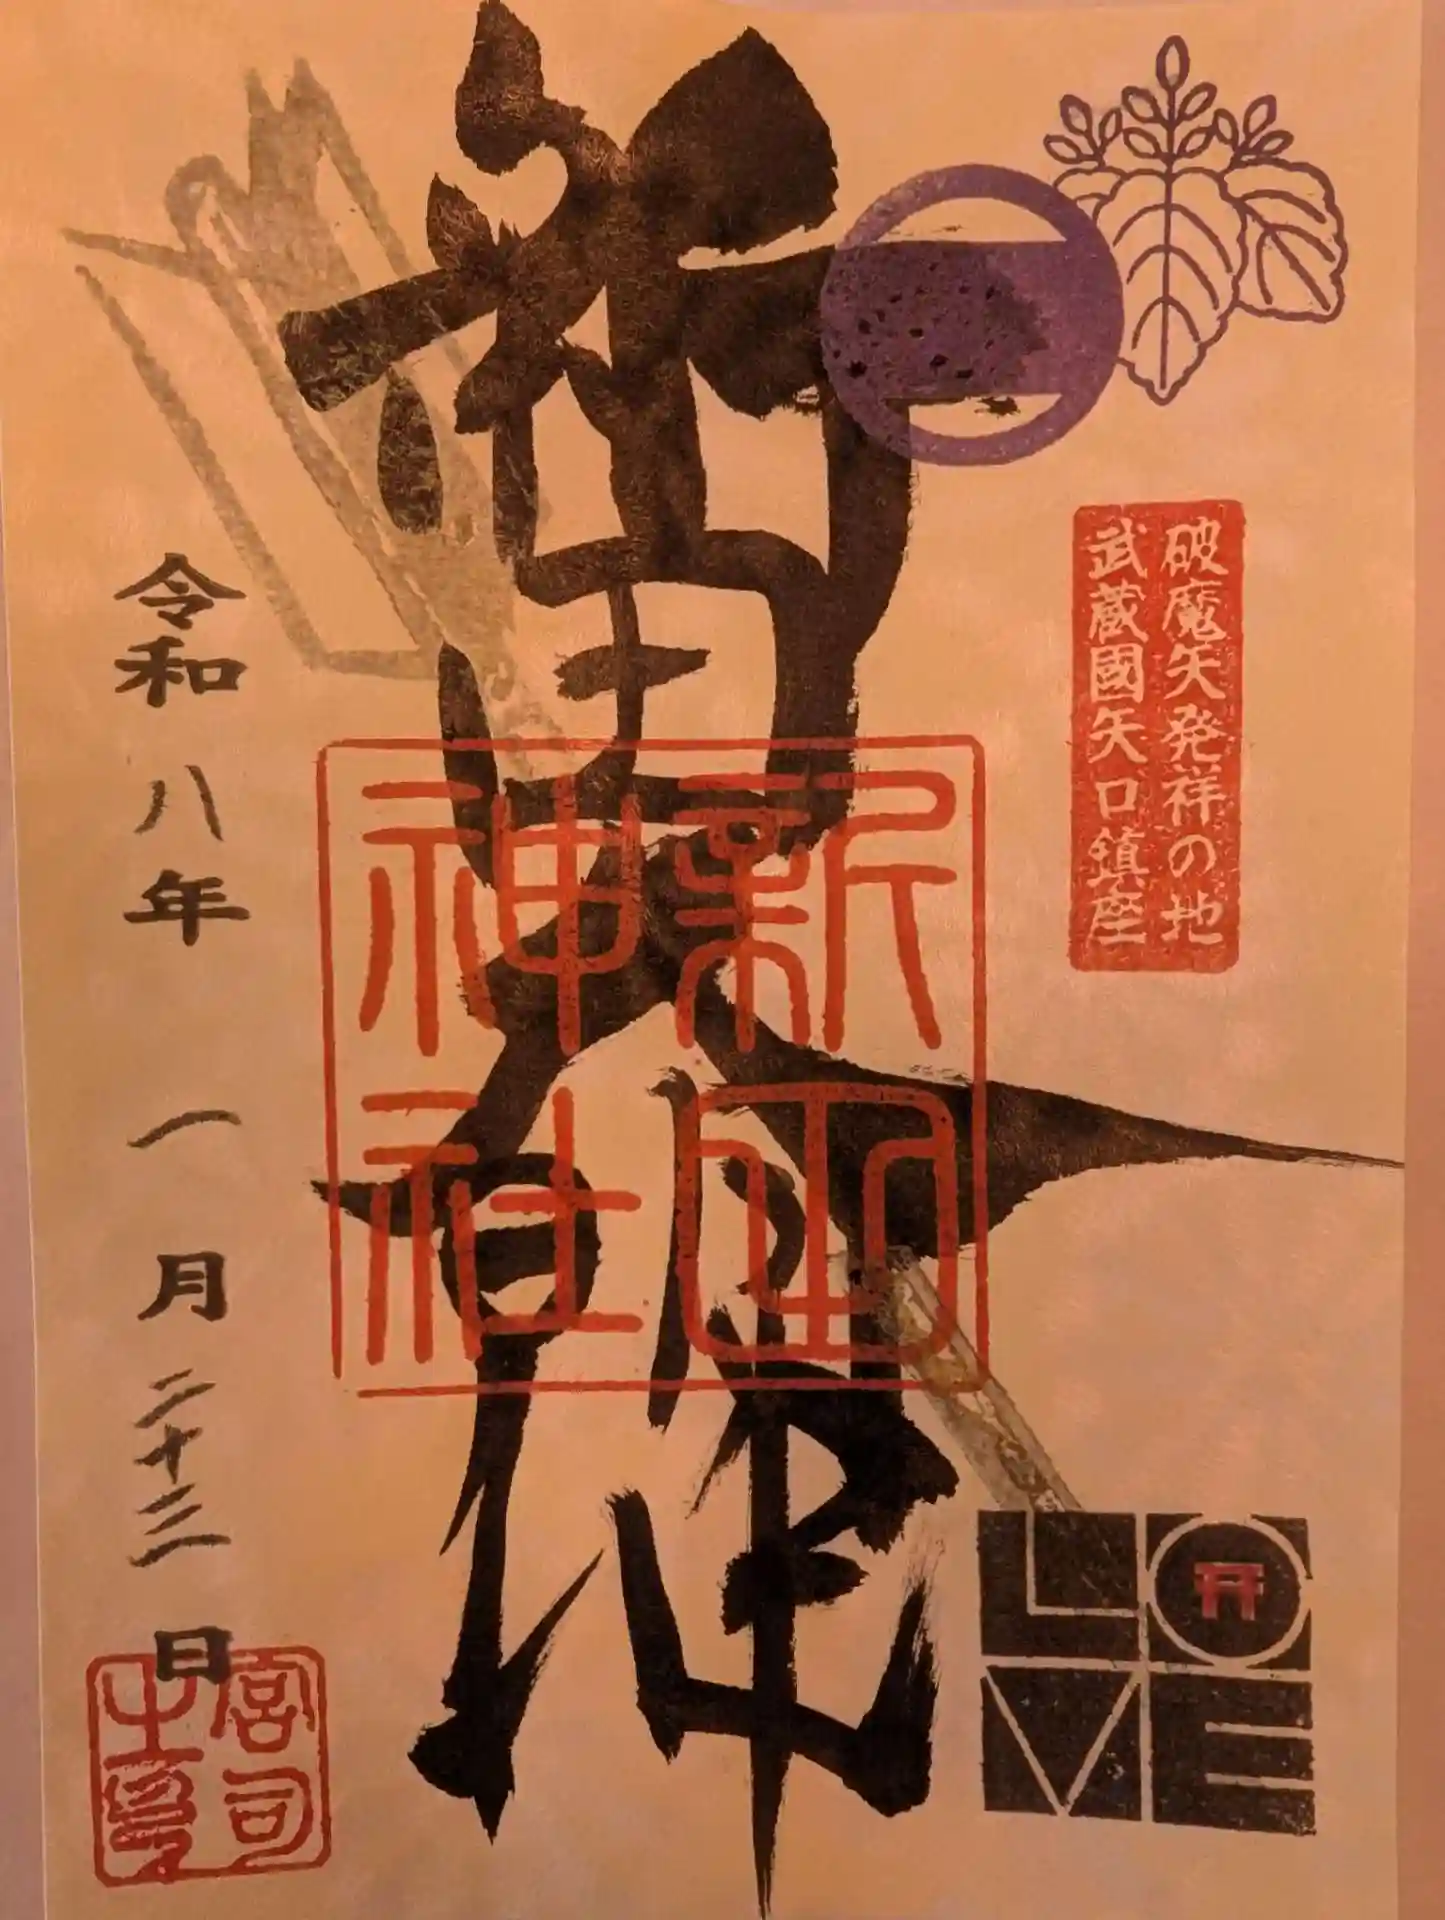 破魔矢発祥の地
武蔵國矢口鎮座
新田大明神
新田
神社
令和八年 一月二十三日
宮司
之印
LOVE